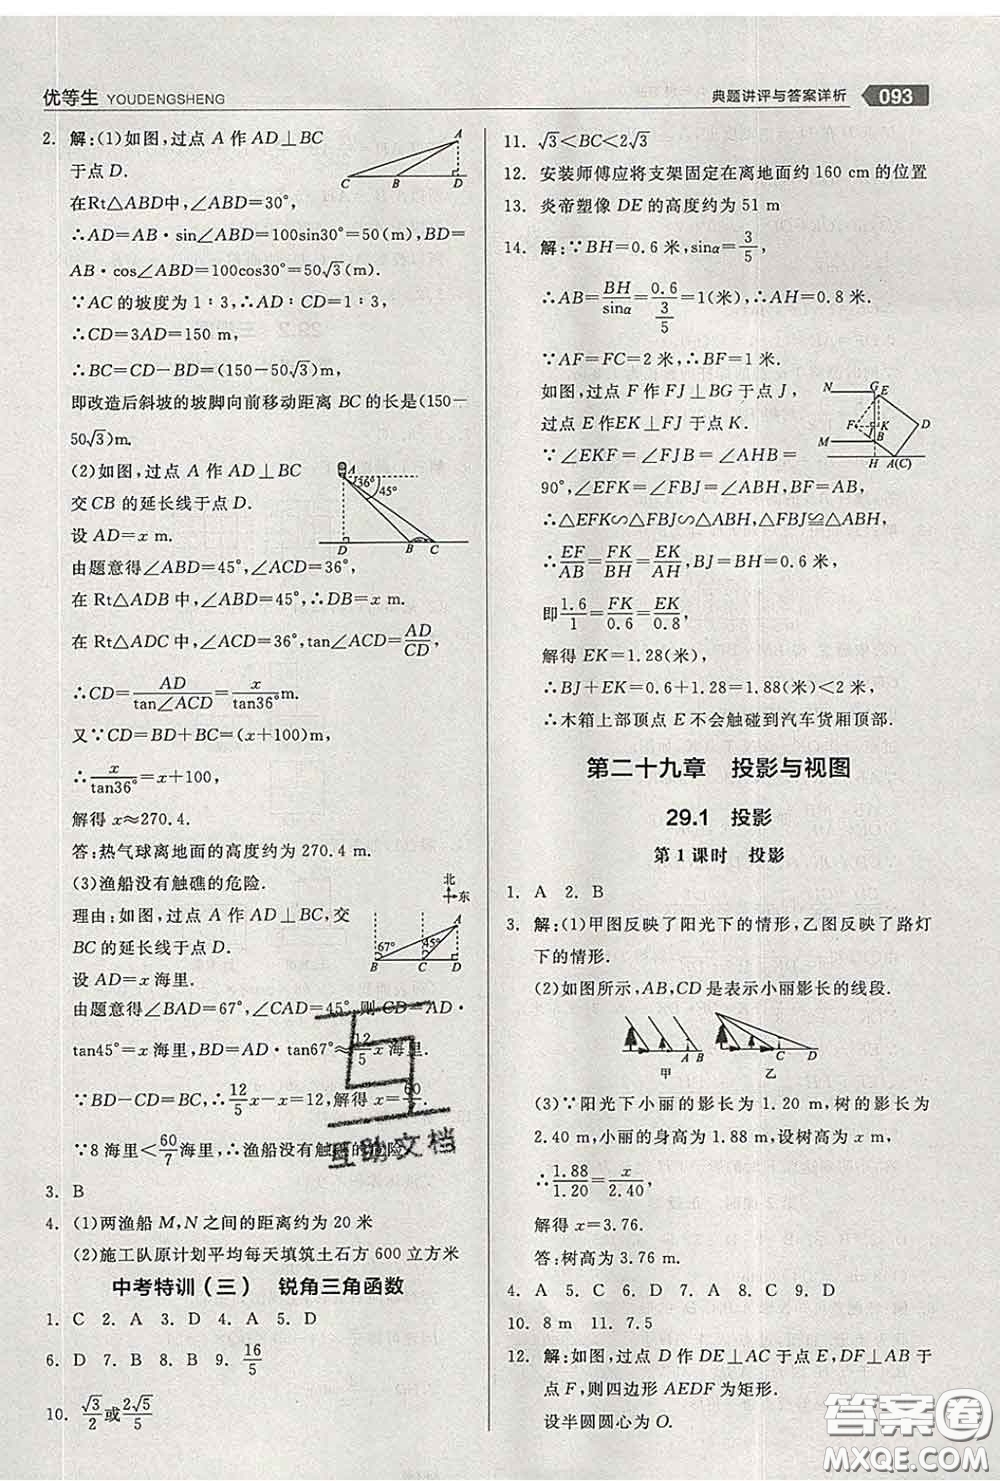 优等生 YOUDENGSHENG
典题讲评与答案详析 093
2. 解:(1)如图,过点 A 作 AD⊥BC
于点 D.
在Rt△ABD中,∠ABD=30°,
∴AD=AB·sin∠ABD=100sin30°=50(m),BD=
AB·cos∠ABD=100cos30°=50√3(m).
∵AC的坡度为1∶3,∴AD∶CD=1∶3,
∴CD=3AD=150 m,
∴BC=CD-BD=(150-50√3)m,
即改造后斜坡的坡脚向前移动距离 BC 的长是(150-
50√3)m.
(2)如图,过点 A 作 AD⊥BC
交 CB 的延长线于点 D.
设 AD=x m.
由题意得∠ABD=45°,∠ACD=36°,
在 Rt△ADB 中,∠ABD=45°,∴DB=x m.
在 Rt△ADC 中,∠ACD=36°,tan∠ACD=AD/CD,
∴CD=AD/tan∠ACD=x/tan36° m.
又∵CD=BD+BC=(x+100)m,
∴x/tan36°=x+100,
解得 x≈270.4.
答:热气球离地面的高度约为 270.4 m.
(3)渔船没有触礁的危险.
理由:如图,过点 A 作 AD⊥BC,交
BC 的延长线于点 D.
设 AD=x 海里.
由题意得∠BAD=67°,∠CAD=45°,则 CD=AD·
tan45°=x 海里,BD=AD·tan67°≈12/5 x 海里.
∵BD-CD=BC,∴12/5 x-x=12,解得 x=60/7.
∵8 海里<60/7海里,∴渔船没有触礁的危险.
3. B
4. (1)两渔船 M,N 之间的距离约为 20 米
(2)施工队原计划平均每天填筑土石方 600 立方米
中考特训(三) 锐角三角函数
1. C 2. A 3. D 4. A 5. D
6. D 7. B 8. B 9. 16/5
10. √3/2或2√5/5
A
C B D
A
56° 45°
D B C
北
东
67° 45°
A
B C D
11. √3<BC<2√3
12. 安装师傅应将支架固定在离地面约 160 cm 的位置
13. 炎帝塑像 DE 的高度约为 51 m
14. 解:∵BH=0.6 米,sinα=3/5,
∴AB=BH/sinα=0.6/(3/5)=1(米),∴AH=0.8 米.
∵AF=FC=2 米,∴BF=1 米.
如图,过点 F 作 FJ⊥BG 于点 J,
过点 E 作EK⊥FJ 于点 K.
∵∠EKF=∠FJB=∠AHB=
90°,∠EFK=∠FBJ=∠ABH,BF=AB,
∴△EFK∽△FBJ∽△ABH,△FBJ≌△ABH,
∴EF/AB=FK/BH=EK/AH,BJ=BH=0.6 米,
即1.6/1=FK/0.6=EK/0.8,
解得 EK=1.28(米),
∴BJ+EK=0.6+1.28=1.88(米)<2(米),
∴木箱上部顶点 E 不会触碰到汽车货厢顶部.
N G E
F J K D
M B
H A(C)
第二十九章 投影与视图
29.1 投影
第 1 课时 投影
1. A 2. B
3. 解:(1)甲图反映了阳光下的情形,乙图反映了路灯
下的情形.
(2)如图所示,AB,CD 是表示小丽影长的线段.
A B
甲
C D
乙
(3)∵阳光下小丽的影长为 1.20 m,树的影长为
2.40 m,小丽的身高为 1.88 m,设树高为 x m,
∴1.88/1.20=x/2.40,
解得 x=3.76.
答:树高为 3.76 m.
4. A 5. C 6. D 7. A 8. C 9. A
10. 8 m 11. 7.5
12. 解:如图,过点 D 作 DE⊥AC 于点 E,DF⊥AB 于
点 F,则四边形 AEDF 为矩形.
设半圆圆心为 O.
互助文档
答案圈
MXQE.COM